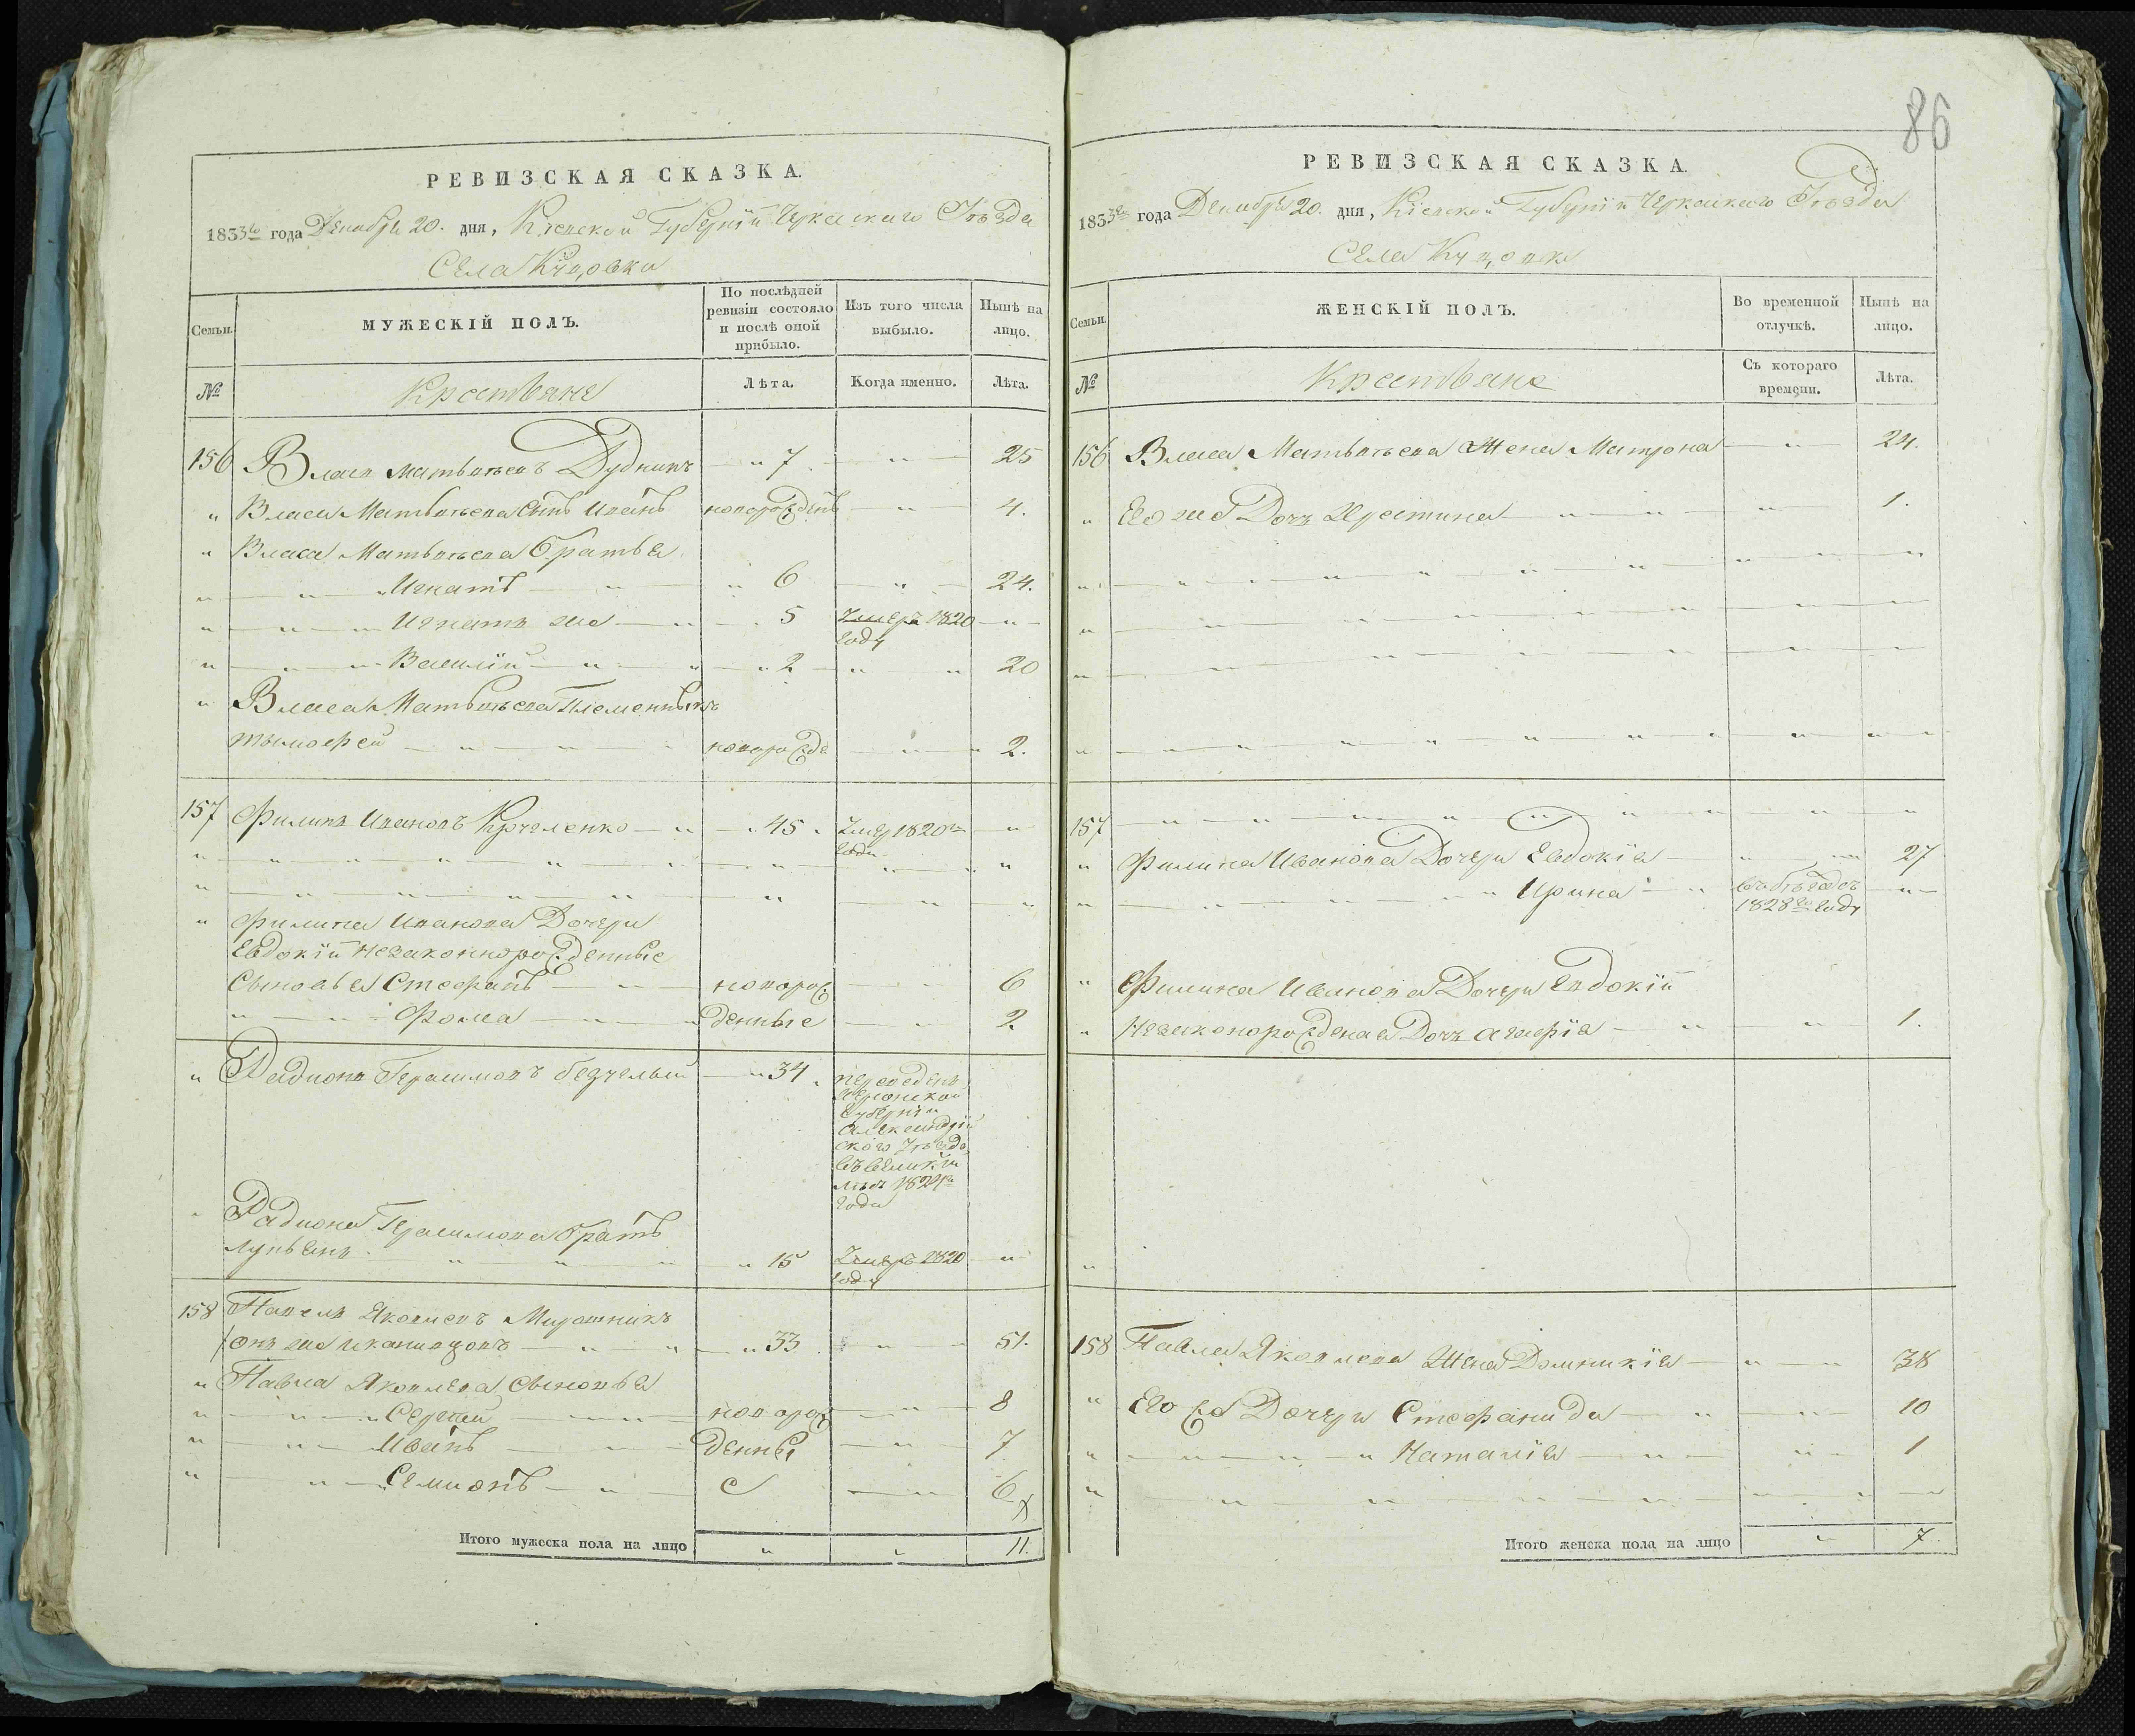 86
РЕВИЗСКАЯ СКАЗКА.
1833го года Декабря 20. дня, Кіевской Губерніи Черкаскаго Уѣзда
Села
Семьи.
МУЖЕСКІЙ ПОЛЪ.
По послѣдней ревизіи состояло и послѣ оной прибыло.
Изъ того числа выбыло.
Нынѣ на лицо.
№
Крестьяне
Лѣта.
Когда именно.
Лѣта.
156 Власъ Матвѣевъ Дудникъ " 7 " 25
" Власа Матвѣева Сынъ Иванъ новорожденъ " 4.
" Власа Матвѣева Братья
" " Игнатъ " " 6 " 24.
" " Игнатъ же " 5 Умеръ 1820 "
году
" " Василій " " " 2 " " 20
" Власа Матвѣева Племенныкъ
Тымофей " " " новорожде " " 2.
157 Филипъ Ивановъ " " 45 Умер 1820го "
года
" Филипа Иванова Дочери
Евдокіи Незаконнорожденные
Сыновья Стефанъ новорож " 6
" " Фома " денные " 2.
" Радионъ Герасимовъ " 34 переведенъ
Херсонской
Губерніи
Александрій
ского Уѣзда
1824го
года
" Радиона Герасимова Братъ
Лукьянъ " " " " 15 Умеръ 1820 "
году
158 Павелъ Яковлевъ Мирошникъ
онъ же " " " 33 " " 51.
" Павла Яковлева Сыновья
" " " Сергей " новорож " 8
" " Иванъ денные " 7
" " Семионъ " " 6
Итого мужеска пола на лицо " " 11.
РЕВИЗСКАЯ СКАЗКА.
1833го года Декабря 20. дня, Кіевской Губерніи Черкаскаго Уѣзда
Села
Семьи.
ЖЕНСКІЙ ПОЛЪ.
Во временной отлучкѣ.
Нынѣ на лицо.
№
Крестьяне
Съ котораго времени.
Лѣта.
156 Власа Матвѣева Жена Матрона " 24.
" Его же Дочь Христина " " " 1.
157 " " " " " " "
" Филипа Иванова Дочери Евдокія " " 27
" " Ирина " "
1828го году
" Филипа Иванова Дочери Евдокіи
" Незаконорожденая Дочь " " 1.
158 Павла Яковлева Жена Домникія " " 38
" Его же Дочери Стефанида " " 10
" " " " Наталія " " 1
Итого женска пола на лицо " 7.